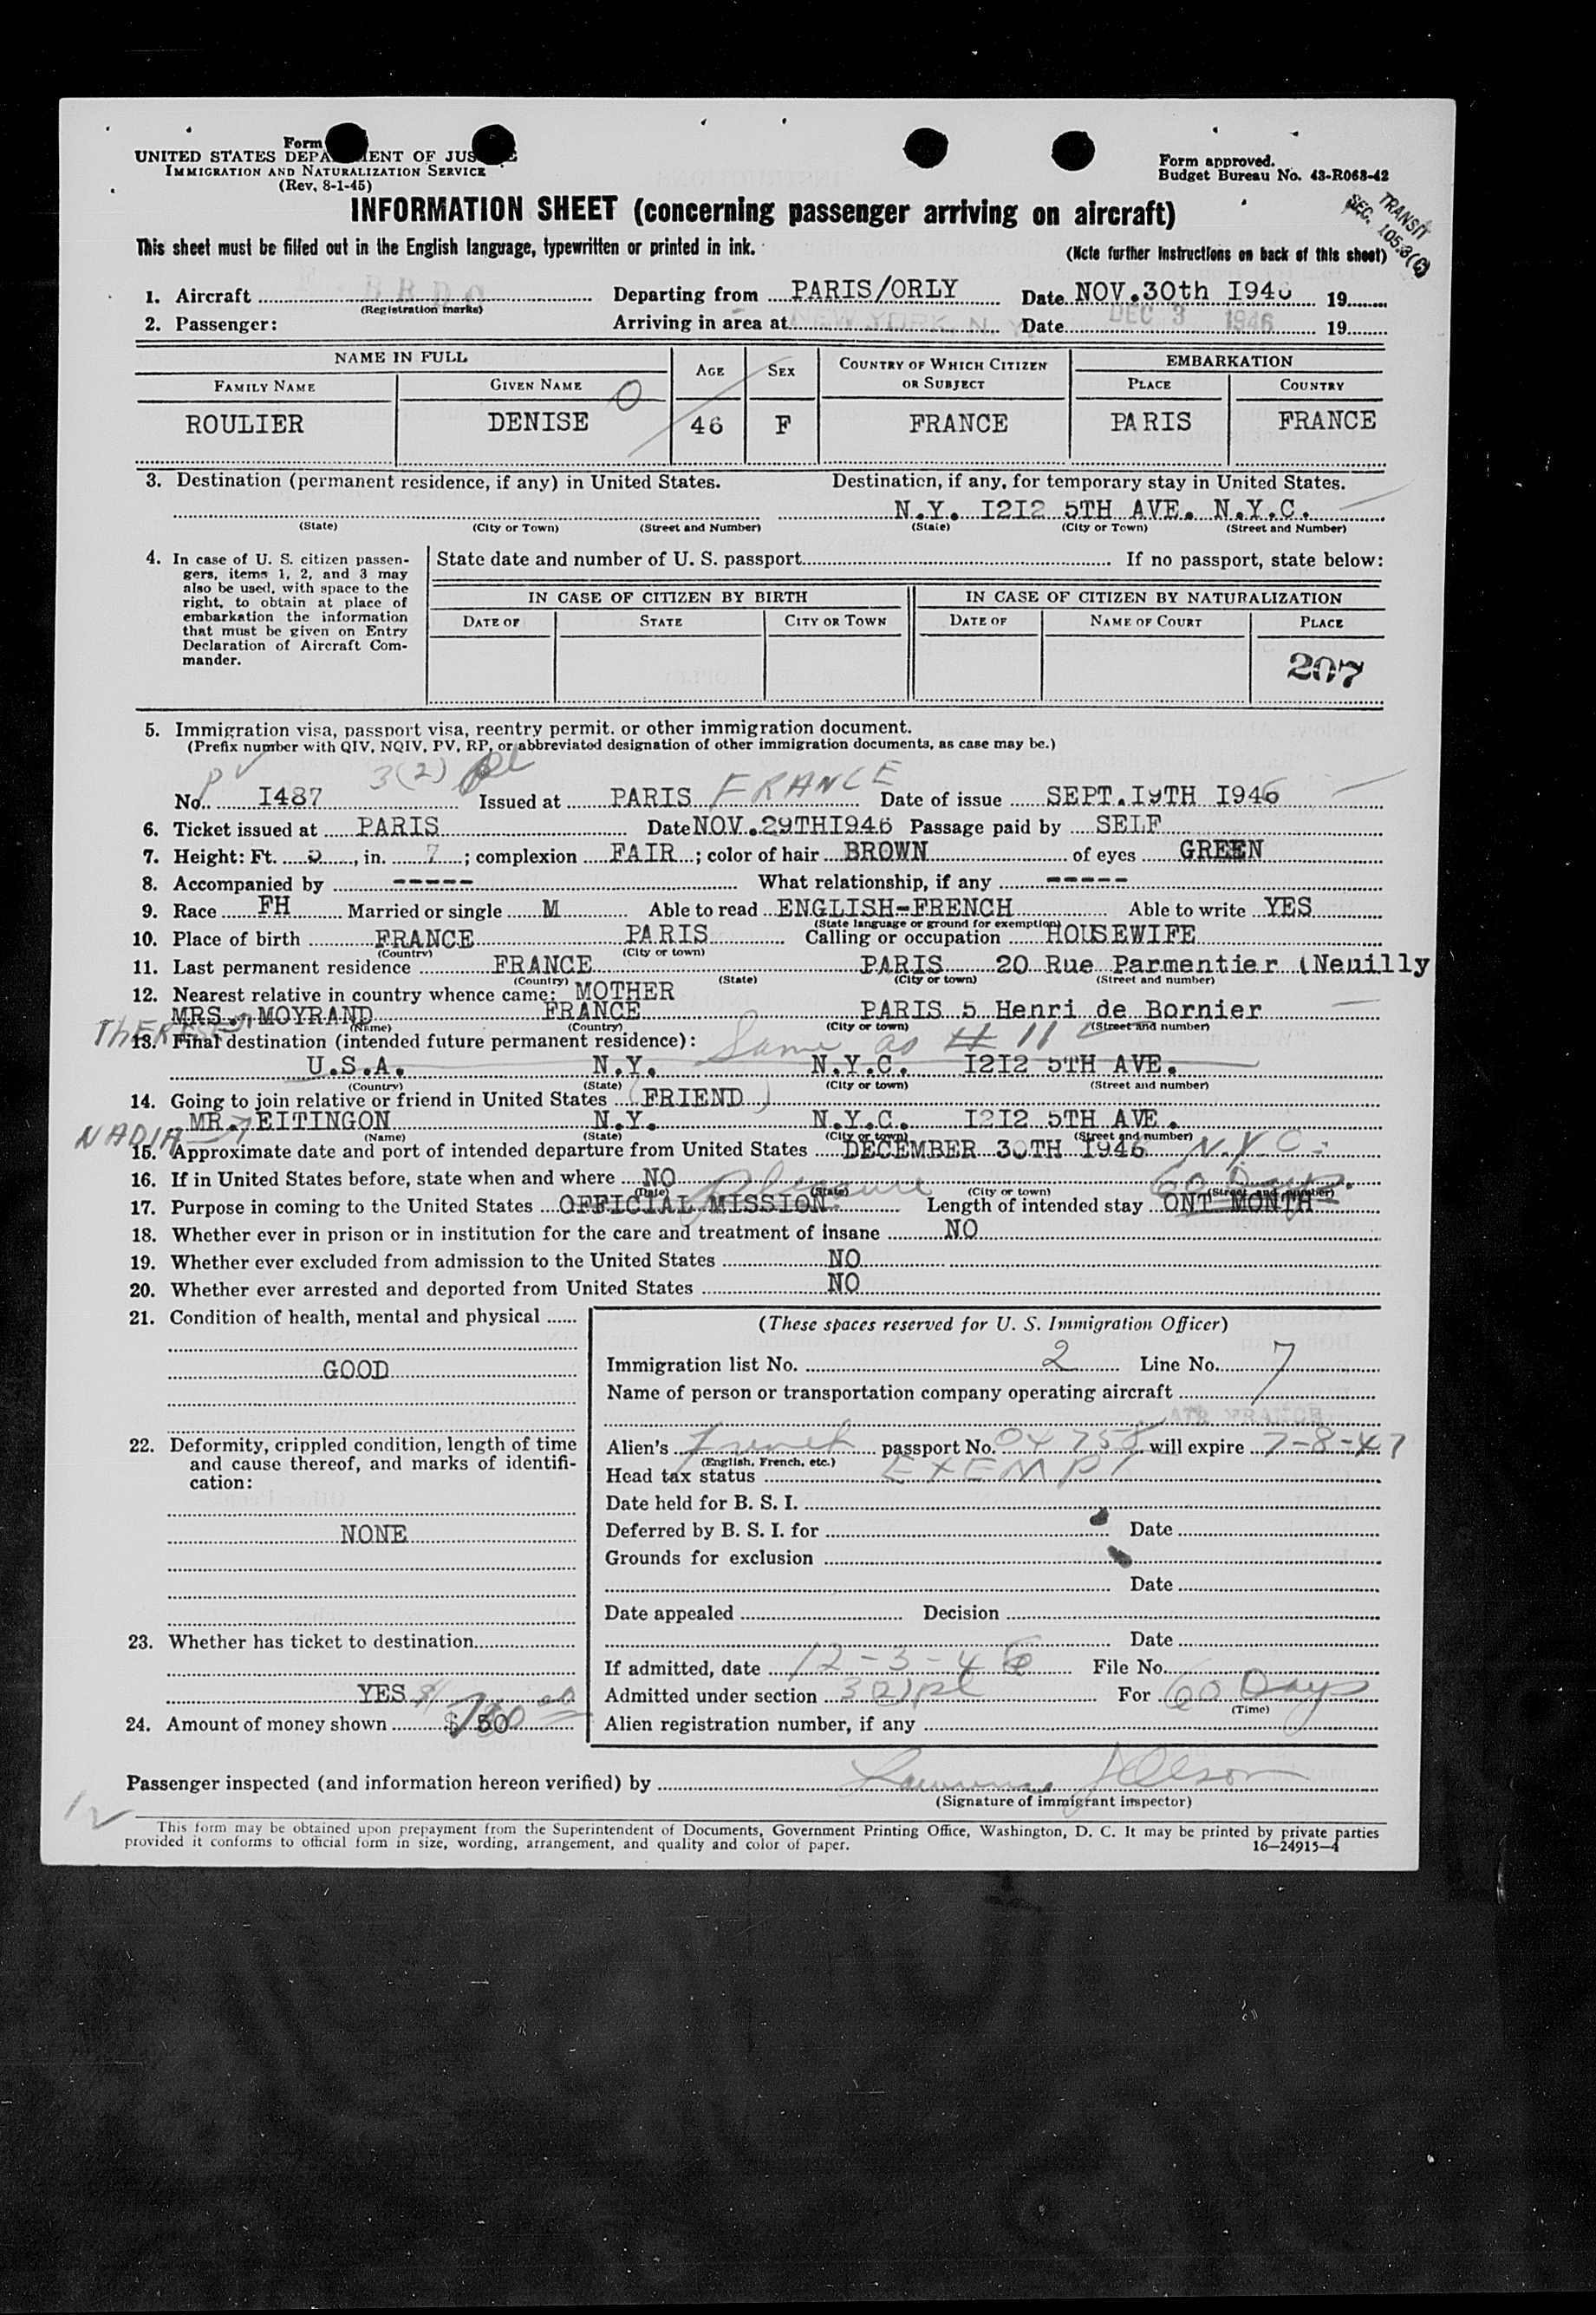 Form
UNITED STATES DEPA MENT OF JUS E
IMMIGRATION AND NATURALIZATION SERVICE
(Rev. 8-1-45)
Form approved.
Budget Bureau No. 43-R068-42
TRANSIT
SEC. 105.3(C)
INFORMATION SHEET (concerning passenger arriving on aircraft)
This sheet must be filled out in the English language, typewritten or printed in ink.
(Note further instructions on back of this sheet)
1. Aircraft Departing from PARIS/ORLY Date NOV.30th I946 19
(Registration marks)
2. Passenger: Arriving in area at NEW YORK, N. Y. Date DEC 3 1946 19
NAME IN FULL AGE SEX COUNTRY OF WHICH CITIZEN OR SUBJECT EMBARKATION
FAMILY NAME GIVEN NAME PLACE COUNTRY
O
ROULIER DENISE 46 F FRANCE PARIS FRANCE
3. Destination (permanent residence, if any) in United States. Destination, if any, for temporary stay in United States.
N.Y. I2I2 5TH AVE. N.Y.C.
(State) (City or Town) (Street and Number) (State) (City or Town) (Street and Number)
4. In case of U. S. citizen passengers, items 1, 2, and 3 may also be used, with space to the right, to obtain at place of embarkation the information that must be given on Entry Declaration of Aircraft Commander.
State date and number of U. S. passport If no passport, state below:
IN CASE OF CITIZEN BY BIRTH IN CASE OF CITIZEN BY NATURALIZATION
DATE OF STATE CITY OR TOWN DATE OF NAME OF COURT PLACE
207
5. Immigration visa, passport visa, reentry permit, or other immigration document.
(Prefix number with QIV, NQIV, PV, RP, or abbreviated designation of other immigration documents, as case may be.)
PV 3(2) pl
No. I487 Issued at PARIS FRANCE Date of issue SEPT.I9TH I946
6. Ticket issued at PARIS Date NOV.29THI946 Passage paid by SELF
7. Height: Ft. 5, in. 7; complexion FAIR; color of hair BROWN of eyes GREEN
8. Accompanied by ----- What relationship, if any -----
9. Race FH Married or single M Able to read ENGLISH-FRENCH Able to write YES
(State language or ground for exemption)
10. Place of birth FRANCE PARIS Calling or occupation HOUSEWIFE
(Country) (City or town)
11. Last permanent residence FRANCE PARIS 20 Rue Parmentier (Neuilly
(Country) (State) (City or town) (Street and number)
12. Nearest relative in country whence came: MOTHER
MRS. MOYRAND FRANCE PARIS 5 Henri de Bornier
THERESE (Name) (Country) (City or town) (Street and number)
13. Final destination (intended future permanent residence): Same as # 11
U.S.A. N.Y. N.Y.C. I2I2 5TH AVE.
(Country) (State) (City or town) (Street and number)
14. Going to join relative or friend in United States (FRIEND)
MR. EITINGON N.Y. N.Y.C. I2I2 5TH AVE.
NADIA (Name) (State) (City or town) (Street and number)
15. Approximate date and port of intended departure from United States DECEMBER 30TH I946 N.Y.C.
16. If in United States before, state when and where NO
(Date) (State) (City or town) (Street and number)
Pleasure 60 Days.
17. Purpose in coming to the United States OFFICIAL MISSION Length of intended stay ONT MONTH
18. Whether ever in prison or in institution for the care and treatment of insane NO
19. Whether ever excluded from admission to the United States NO
20. Whether ever arrested and deported from United States NO
21. Condition of health, mental and physical
GOOD
22. Deformity, crippled condition, length of time and cause thereof, and marks of identification:
NONE
23. Whether has ticket to destination
YES
24. Amount of money shown $ 50
(These spaces reserved for U. S. Immigration Officer)
Immigration list No. 2 Line No. 7
Name of person or transportation company operating aircraft
AIR FRANCE
Alien's French passport No. 04758 will expire 7-8-47
(English, French, etc.)
Head tax status EXEMPT
Date held for B. S. I.
Deferred by B. S. I. for Date
Grounds for exclusion
Date
Date appealed Decision
Date
If admitted, date 12-3-46 File No.
Admitted under section 3(2)pl For 60 Days
(Time)
Alien registration number, if any
Passenger inspected (and information hereon verified) by
(Signature of immigrant inspector)
This form may be obtained upon prepayment from the Superintendent of Documents, Government Printing Office, Washington, D. C. It may be printed by private parties
provided it conforms to official form in size, wording, arrangement, and quality and color of paper. 16—24915-4